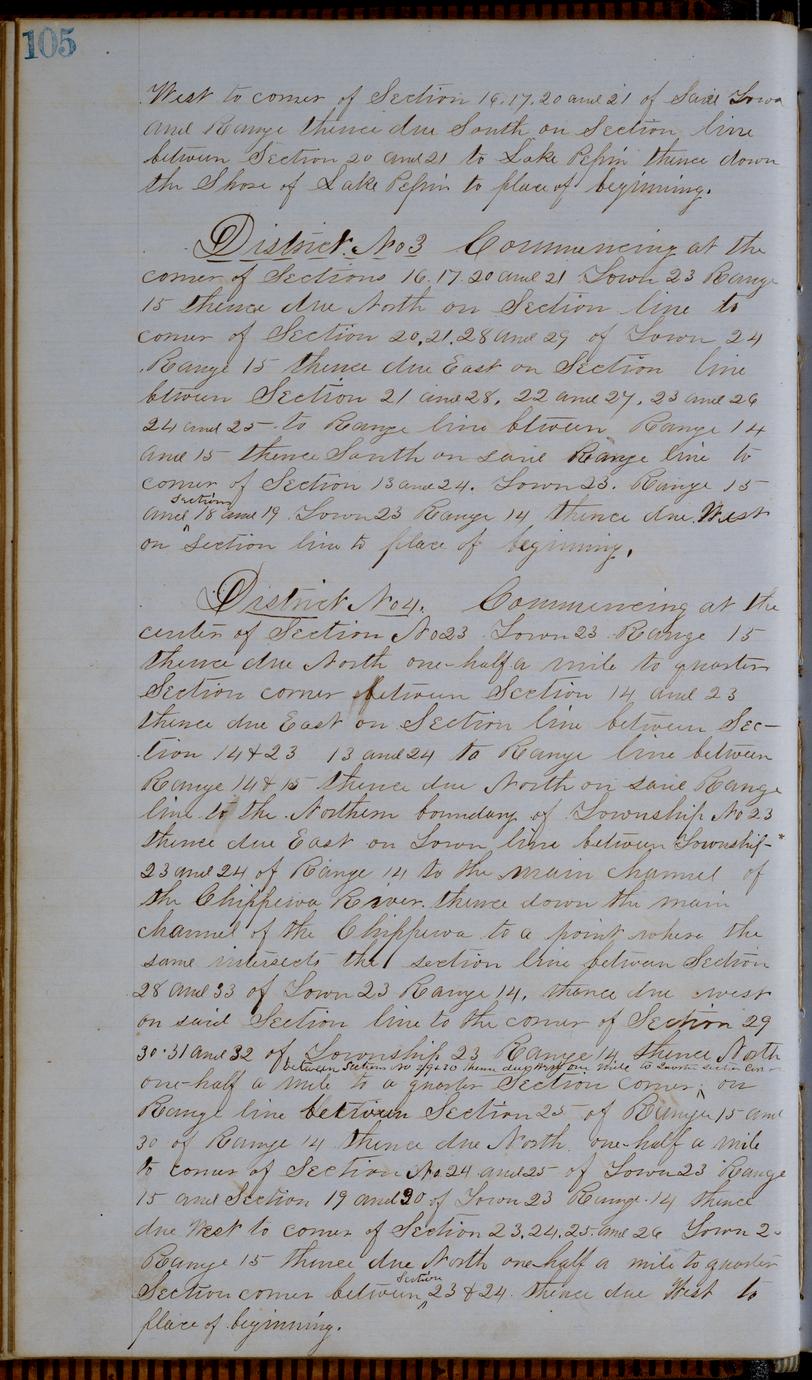 105
West to corner of Section 16.17.20 and 21 of Said Town
and Range thence due South on Section line
between Section 20 and 21 to Lake Pepin thence down
the Shore of Lake Pepin to place of beginning.
District No 3 Commencing at the
corner of Sections 16.17.20 and 21 Town 23 Range
15 thence due North on Section line to
corner of Section 20,21.28 and 29 of Town 24
Range 15 thence due East on Section line
btween Section 21 and 28, 22 and 27, 23 and 26
24 and 25 to Range line btween Range 14
and 15 thence South on said Range line to
corner of Section 13 and 24. Town 23. Range 15
Sections
and ^ 18 and 19 Town 23 Range 14 thence due West
on section line to place of beginning.
District No 4. Commencing at the
center of Section No 23 Town 23 Range 15
thence due North one-half a mile to quarter
Section corner between Section 14 and 23
thence due East on Section line between Sec-
tion 14 & 23 13 and 24 to Range line between
Range 14 & 15 thence due North on said Range
line to the Northern boundary of Township No 23
thence due East on Town line between Township
23 and 24 of Range 14 to the main channel of
the Chippewa River. thence down the main
channel of the Chippewa to a point where the
same intersects the section line between Section
28 and 33 of Town 23 Range 14, thence due west
on said Section line to the corner of Section 29
30.31 and 32 of Township 23 Range 14 thence North
between Sections No 29 & 30 thence due West one mile to quarter section corner
one-half a mile to a quarter Section corner ^ on
Range line between Section 25 of Range 15 and
30 of Range 14 thence due North one-half a mile
to corner of Section No 24 and 25 of Town 23 Range
15 and Section 19 and 30 of Town 23 Range 14 thence
due West to corner of Section 23,24,25 and 26 Town 2
Range 15 thence due North one-half a mile to quarter
Section
Section corner between ^ 23 & 24 thence due West to
place of beginning.